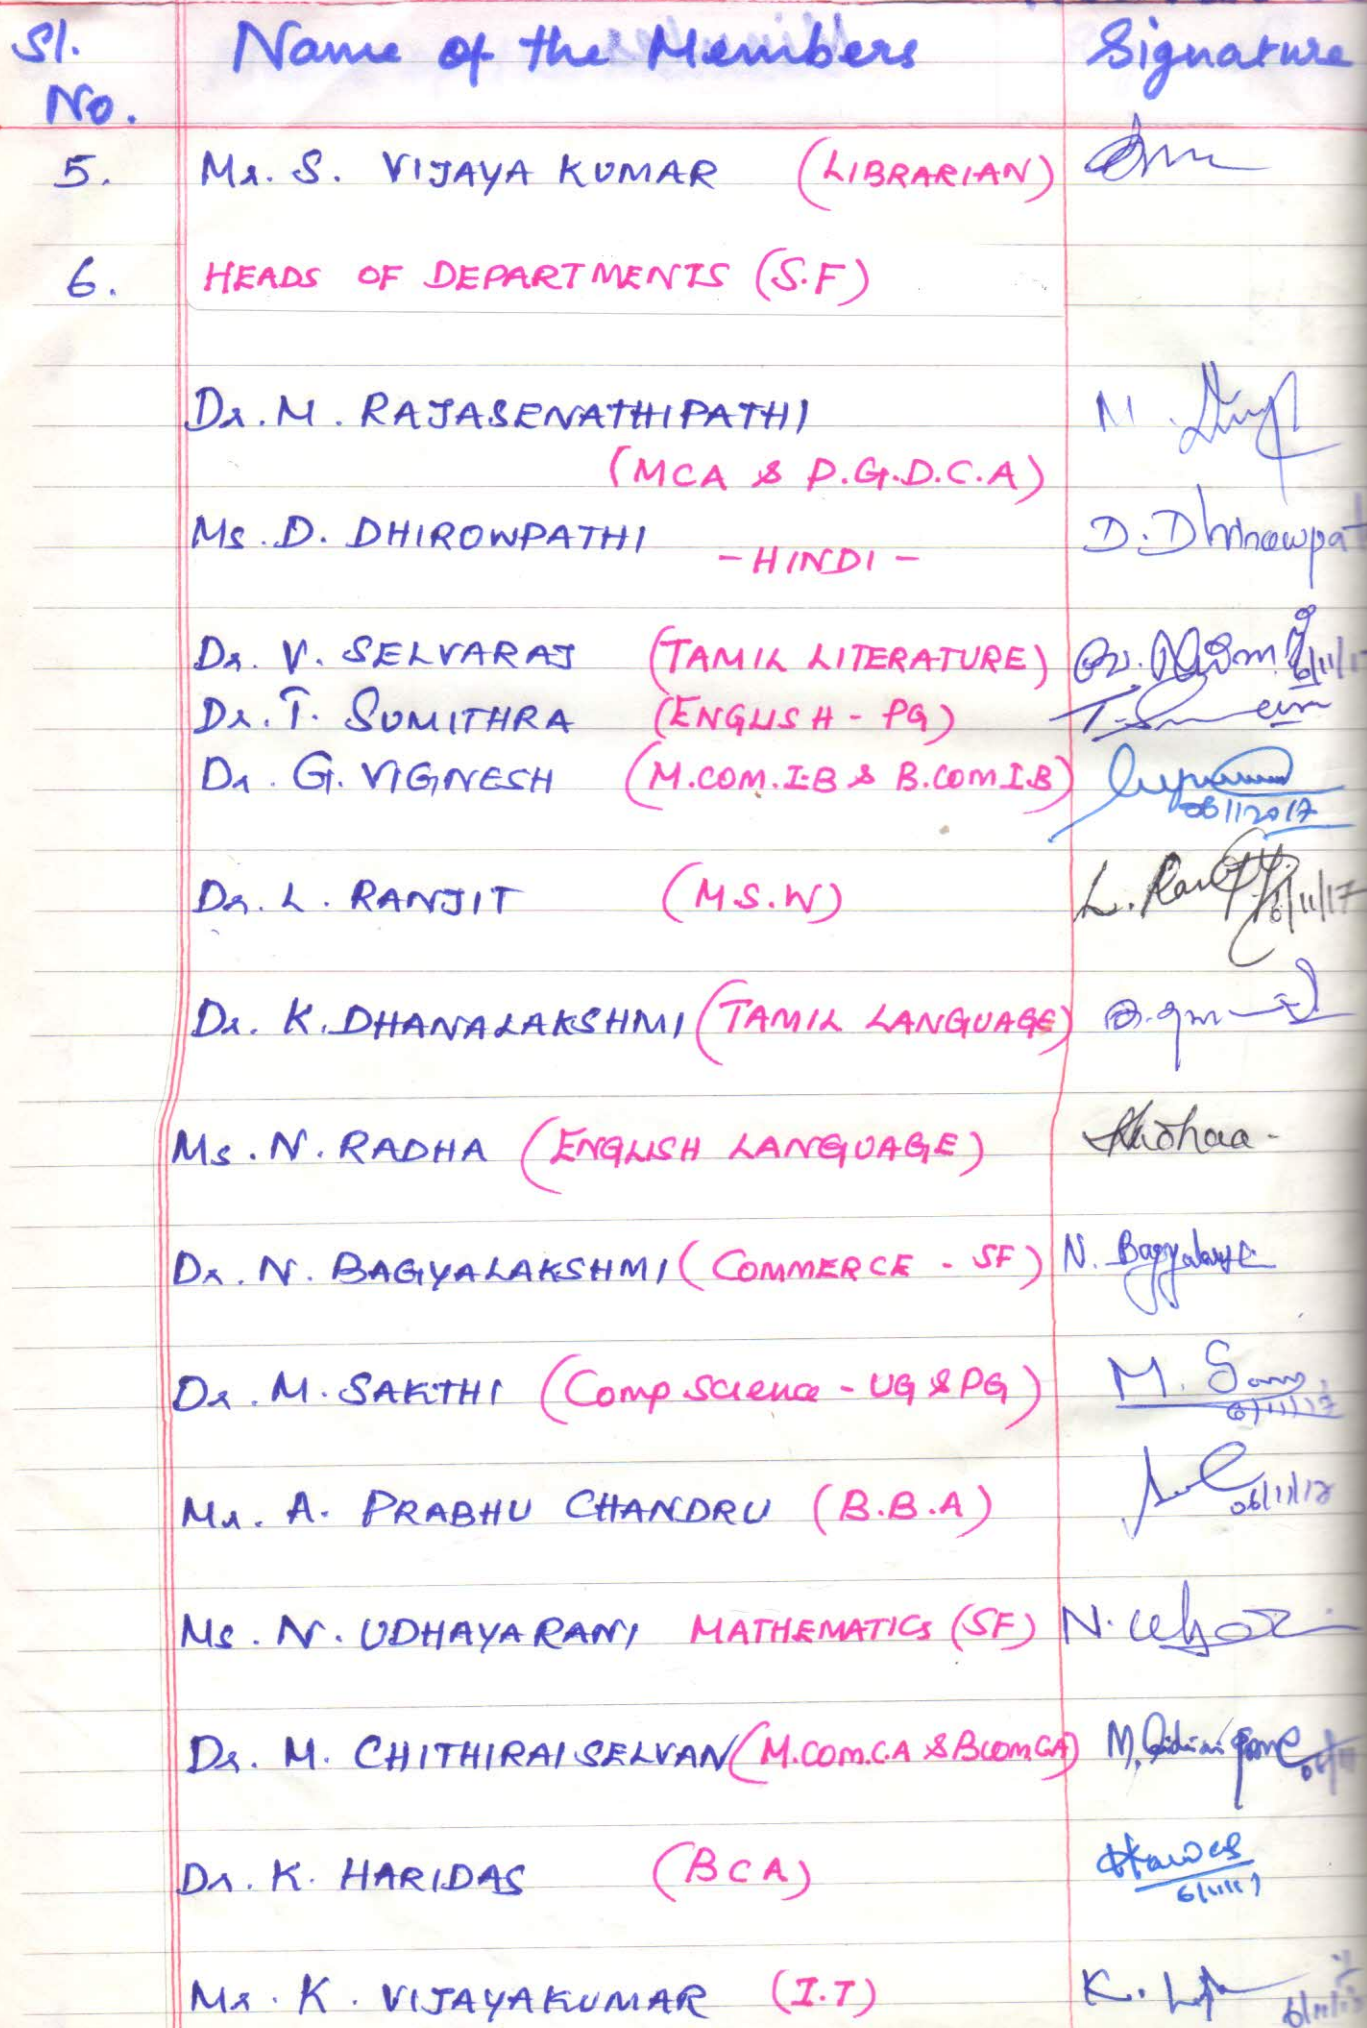 Sl. Name of the Members Signature
No.
5. Mr. S. VIJAYA KUMAR (LIBRARIAN)
6. HEADS OF DEPARTMENTS (S.F)
Dr. M. RAJASENATHIPATHI M.
(MCA & P.G.D.C.A)
Ms. D. DHIROWPATHI D. Dhirowpat
- HINDI -
Dr. V. SELVARAJ (TAMIL LITERATURE) 6/11/17
Dr. T. SUMITHRA (ENGLISH - PG)
Dr. G. VIGNESH (M.COM.I.B & B.COM I.B)
06112017
Dr. L. RANJIT (M.S.W) L. 6/11/17
Dr. K. DHANALAKSHMI (TAMIL LANGUAGE)
Ms. N. RADHA (ENGLISH LANGUAGE)
Dr. N. BAGYALAKSHMI (COMMERCE - SF) N.
Dr. M. SAKTHI (Comp Science - UG & PG) M.
6/11/17
Mr. A. PRABHU CHANDRU (B.B.A) 06/11/17
Ms. N. UDHAYARANI MATHEMATICS (SF) N.
Dr. M. CHITHIRAISELVAN (M.COM.CA & BCOM CA) M.
Dr. K. HARIDAS (BCA)
6/11/17
Mr. K. VIJAYAKUMAR (I.T) K.